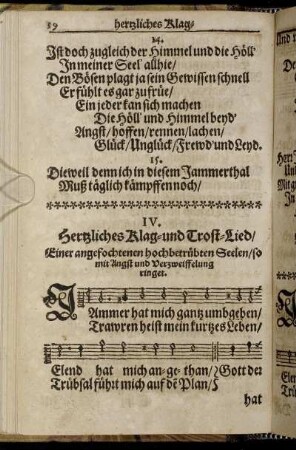 59 hertzliches Klag-
14.
Ist doch zugleich der Himmel und die Höll'
In meiner Seel' allhie/
Den Bösen plagt ja sein Gewissen schnell
Er fühlt es gar zu früe/
Ein jeder kan sich machen
Die Höll' und Himmel beyd'
Angst/ hoffen/ rennen/ lachen/
Glück/ Unglück/ Frewd' und Leyd.
15.
Dieweil denn ich in diesem Jammerthal
Muß täglich kämpffen noch/
IV.
Hertzliches Klag- und Trost-Lied/
Einer angefochtenen hochbetrübten Seelen/ so
mit Angst und Verzweiffelung
ringet.
JAmmer hat mich gantz umbgeben/
Trawren heist mein kurtzes Leben/
Elend hat mich an-ge-than/ Gott der
Trübsal führt mich auf dē Plan/
hat